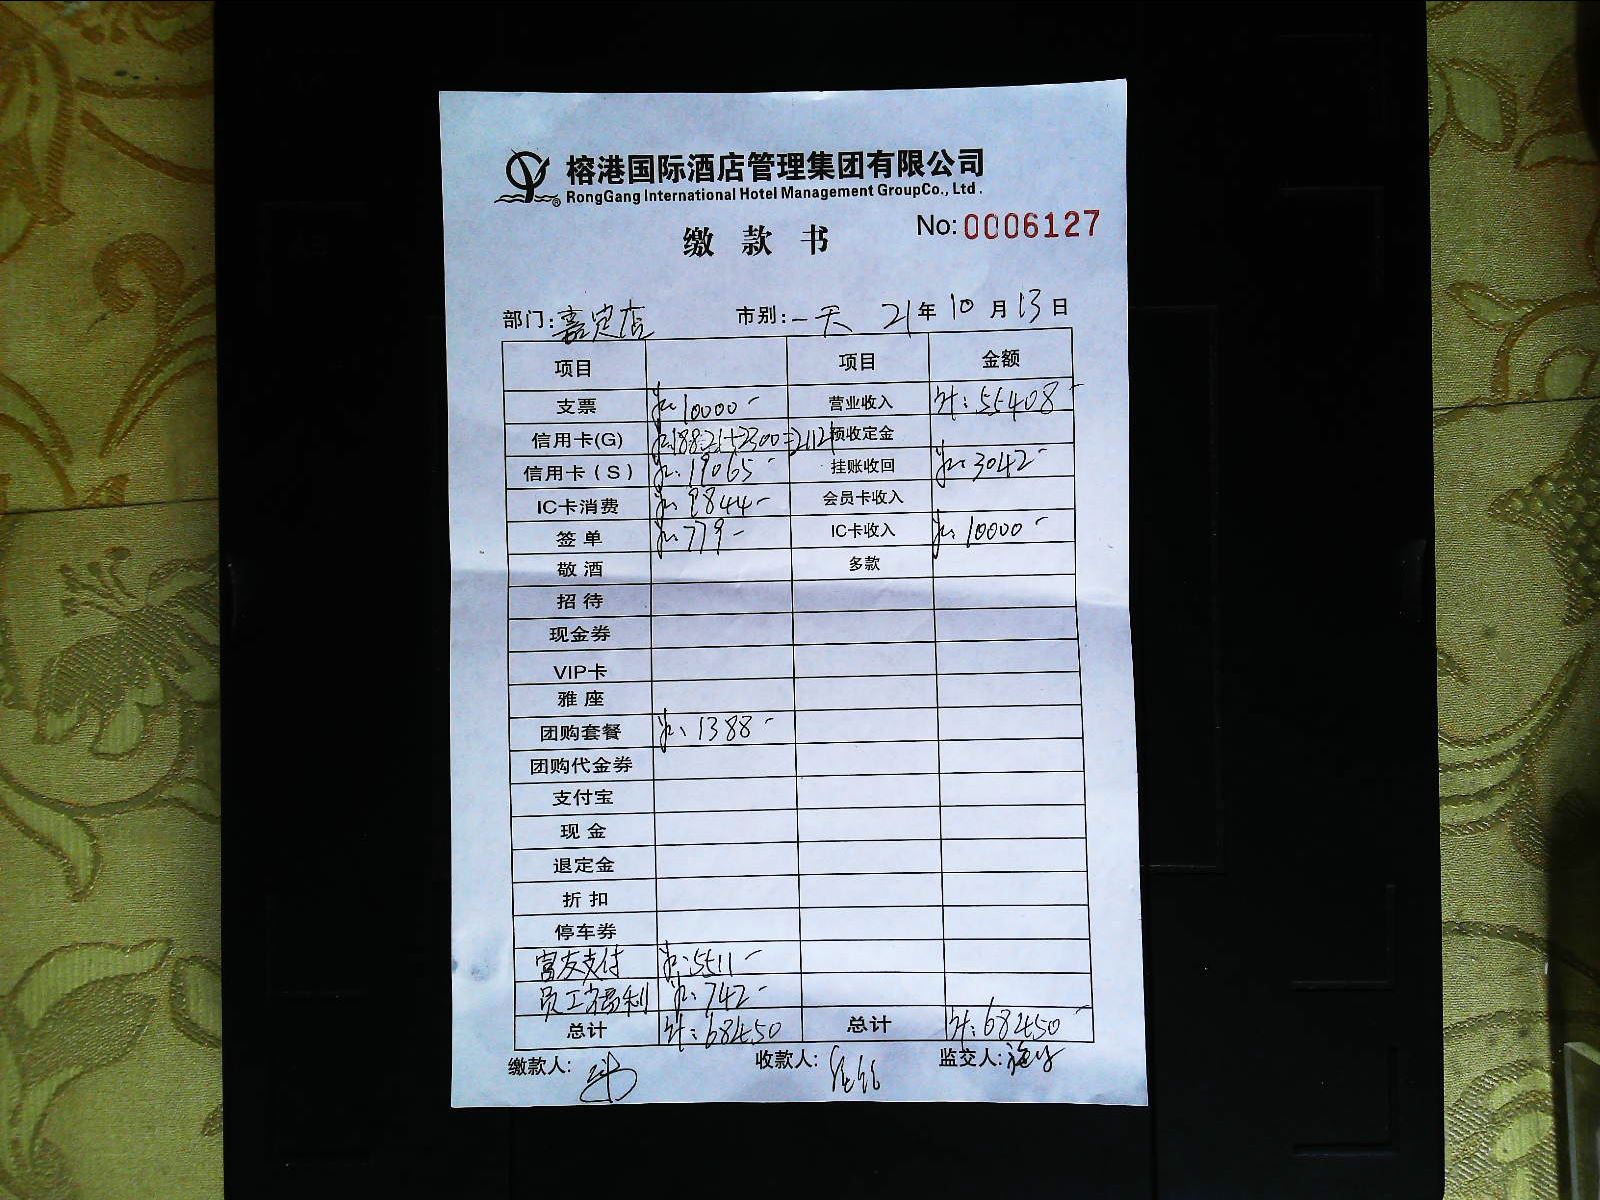 榕港国际酒店管理集团有限公司
RongGang International Hotel Management GroupCo., Ltd.
No:0006127
缴 款 书
部门:嘉定店 市别:一天 21年10月13日
项目 项目 金额
支票 计:10000- 营业收入 计:55408-
信用卡(G) 计:18821+2300=21121 预收定金
信用卡(S) 计:19065- 挂账收回 计:3042-
IC卡消费 计:9844- 会员卡收入
签单 计:779- IC卡收入 计:10000-
敬酒 多款
招待
现金券
VIP卡
雅座
团购套餐 计:1388-
团购代金券
支付宝
现金
退定金
折扣
停车券
富友支付 计:5511-
员工福利 计:742-
总计 计:68450 总计 计:68450-
缴款人: 收款人: 监交人: